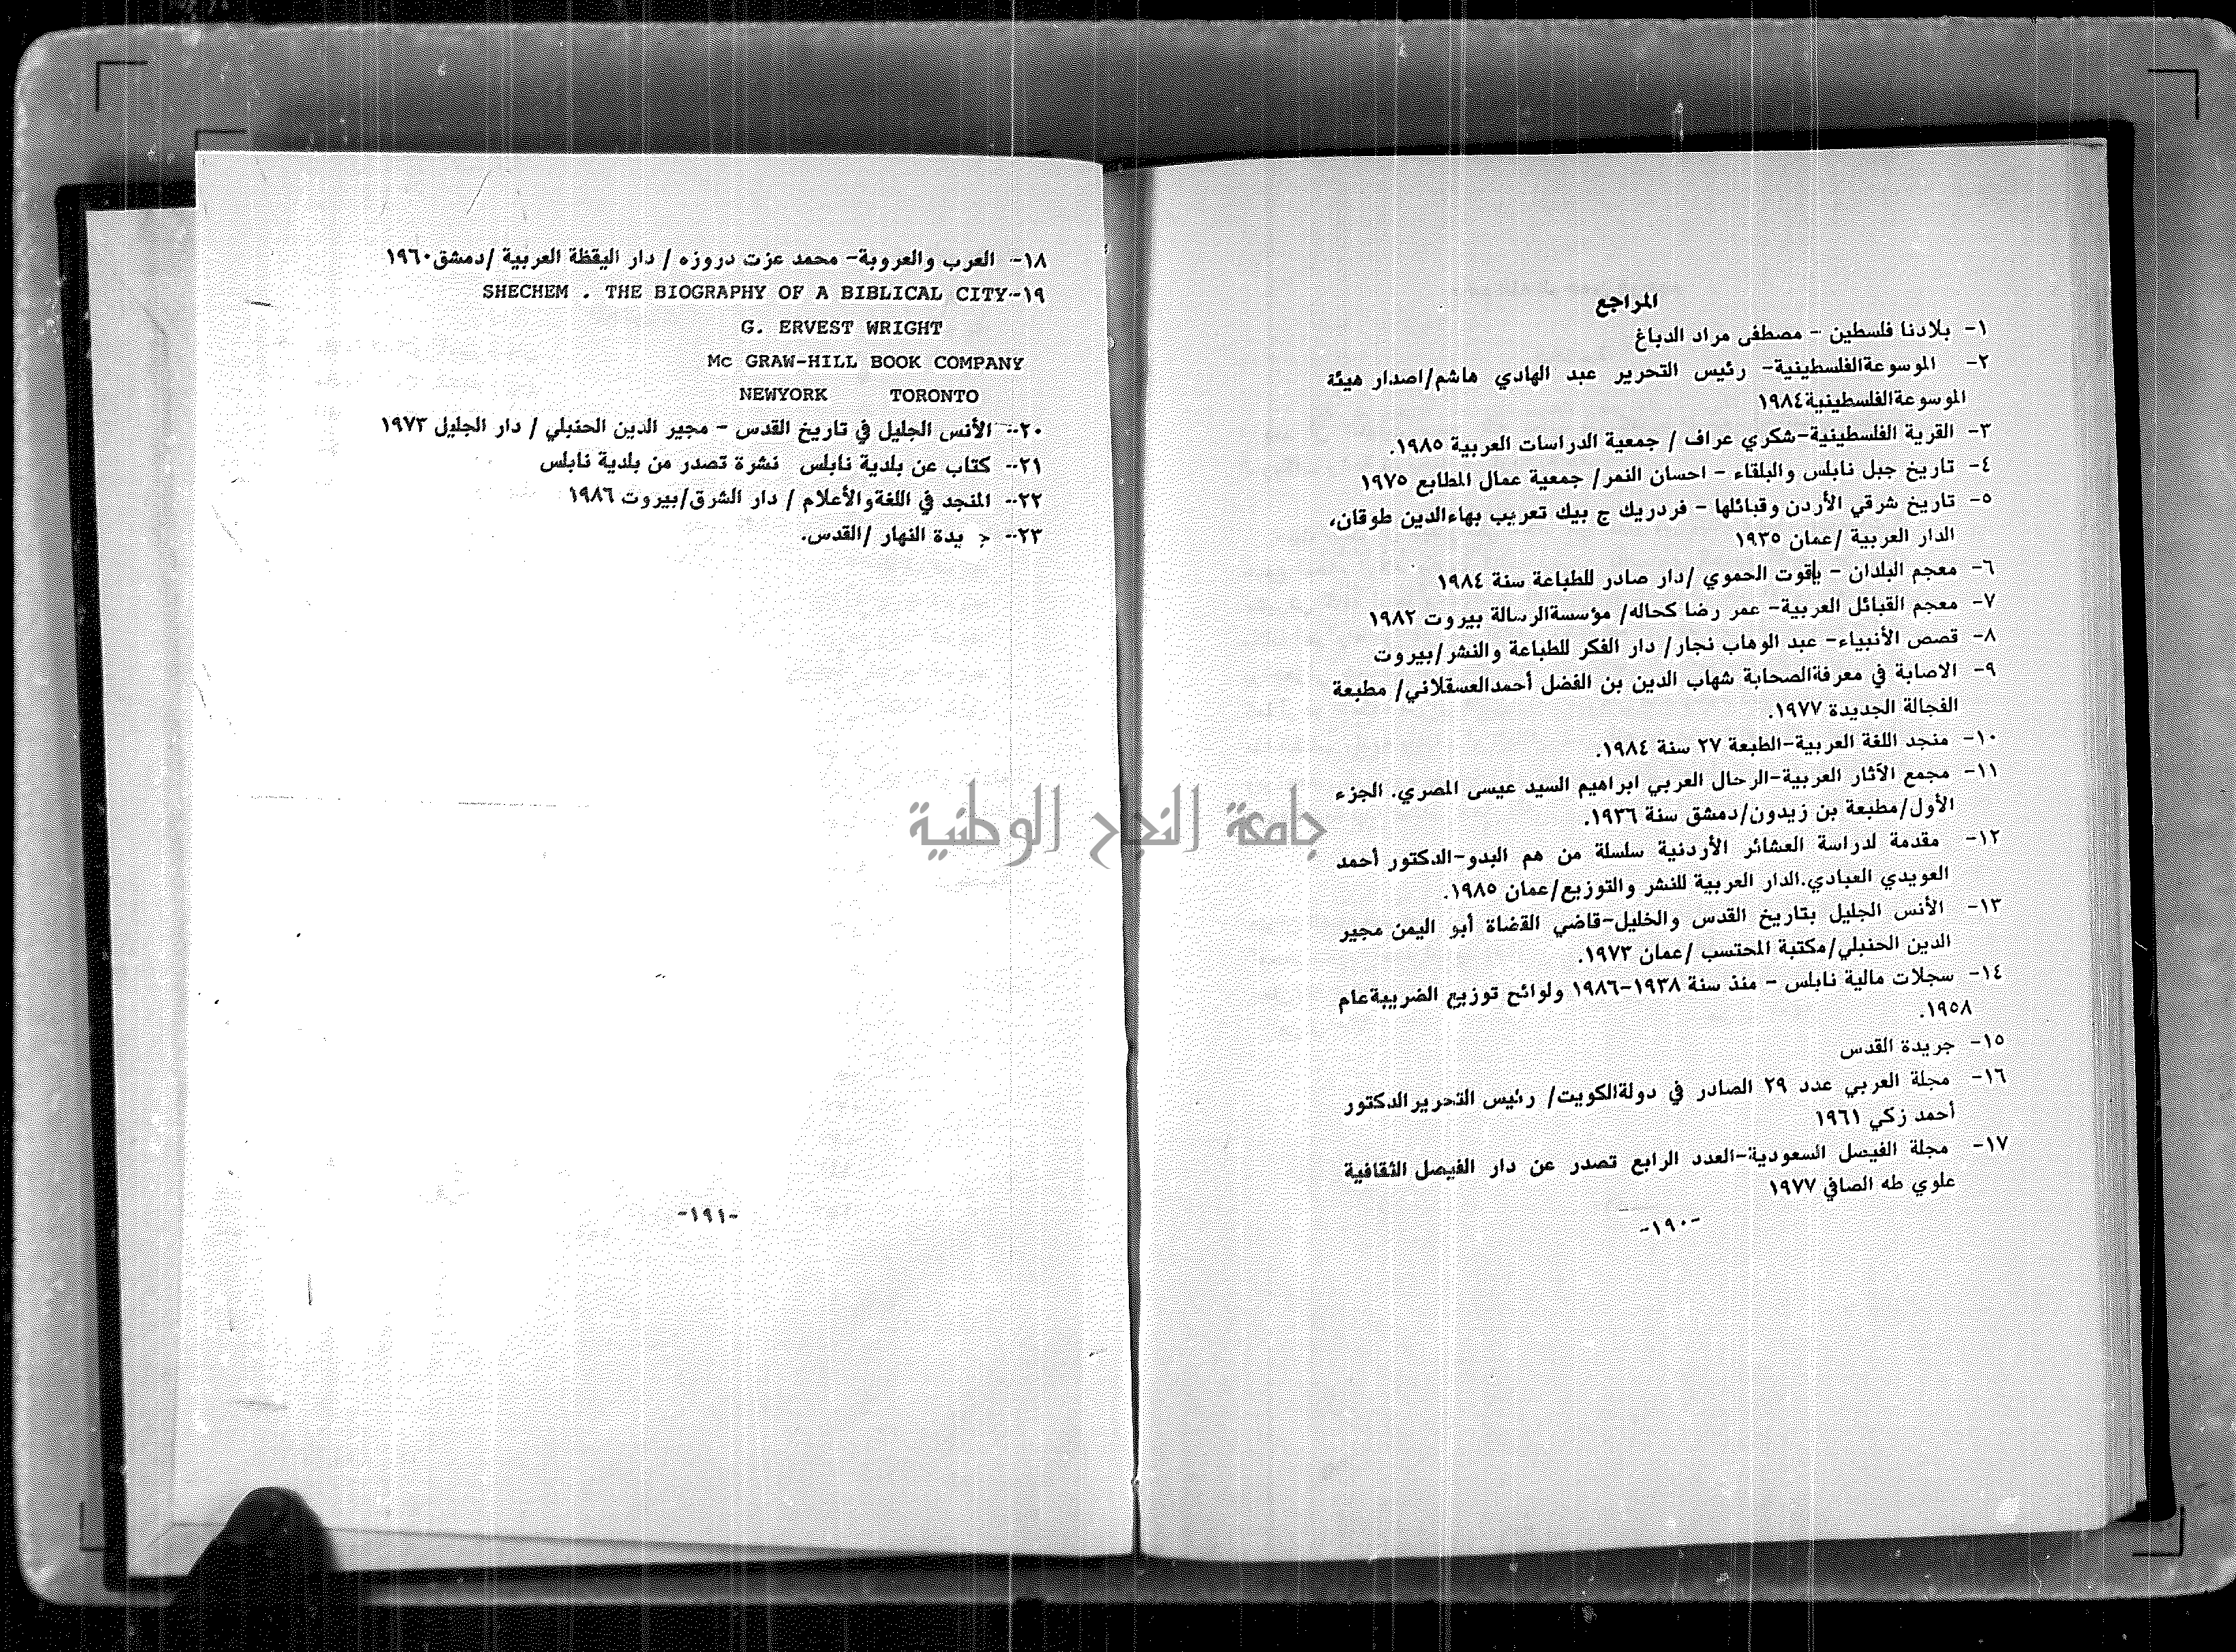 المراجع
١- بلادنا فلسطين - مصطفى مراد الدباغ
٢- الموسوعةالفلسطينية- رئيس التحرير عبد الهادي هاشم/اصدار هيئة
الموسوعةالفلسطينية١٩٨٤
٣- القرية الفلسطينية-شكري عراف / جمعية الدراسات العربية ١٩٨٥.
٤- تاريخ جبل نابلس والبلقاء - احسان النمر/ جمعية عمال المطابع ١٩٧٥
٥- تاريخ شرقي الأردن وقبائلها - فردريك ج بيك تعريب بهاءالدين طوقان،
الدار العربية /عمان ١٩٣٥
٦- معجم البلدان - ياقوت الحموي /دار صادر للطباعة سنة ١٩٨٤
٧- معجم القبائل العربية- عمر رضا كحاله/ مؤسسةالرسالة بيروت ١٩٨٢
٨- قصص الأنبياء- عبد الوهاب نجار/ دار الفكر للطباعة والنشر/بيروت
٩- الاصابة في معرفةالصحابة شهاب الدين بن الفضل أحمدالعسقلاني/ مطبعة
الفجالة الجديدة ١٩٧٧.
١٠- منجد اللغة العربية-الطبعة ٢٧ سنة ١٩٨٤.
١١- مجمع الآثار العربية-الرحال العربي ابراهيم السيد عيسى المصري. الجزء
الأول/مطبعة بن زيدون/دمشق سنة ١٩٣٦.
١٢- مقدمة لدراسة العشائر الأردنية سلسلة من هم البدو-الدكتور أحمد
العويدي العبادي.الدار العربية للنشر والتوزيع/عمان ١٩٨٥.
١٣- الأنس الجليل بتاريخ القدس والخليل-قاضي القضاة أبو اليمن مجير
الدين الحنبلي/مكتبة المحتسب /عمان ١٩٧٣.
١٤- سجلات مالية نابلس - منذ سنة ١٩٣٨-١٩٨٦ ولوائح توزيع الضريبةعام
١٩٥٨.
١٥- جريدة القدس
١٦- مجلة العربي عدد ٢٩ الصادر في دولةالكويت/ رئيس التحريرالدكتور
أحمد زكي ١٩٦١
١٧- مجلة الفيصل السعودية-العدد الرابع تصدر عن دار الفيصل الثقافية
علوي طه الصافي ١٩٧٧
-١٩٠-
١٨- العرب والعروبة- محمد عزت دروزه / دار اليقظة العربية /دمشق١٩٦٠
١٩-SHECHEM . THE BIOGRAPHY OF A BIBLICAL CITY
G. ERVEST WRIGHT
Mc GRAW-HILL BOOK COMPANY
NEWYORK TORONTO
٢٠- الأنس الجليل في تاريخ القدس - مجير الدين الحنبلي / دار الجليل ١٩٧٣
٢١- كتاب عن بلدية نابلس نشرة تصدر من بلدية نابلس
٢٢- المنجد في اللغةوالأعلام / دار الشرق/بيروت ١٩٨٦
٢٣- ج يدة النهار /القدس.
-١٩١-
جامعة النجاح الوطنية